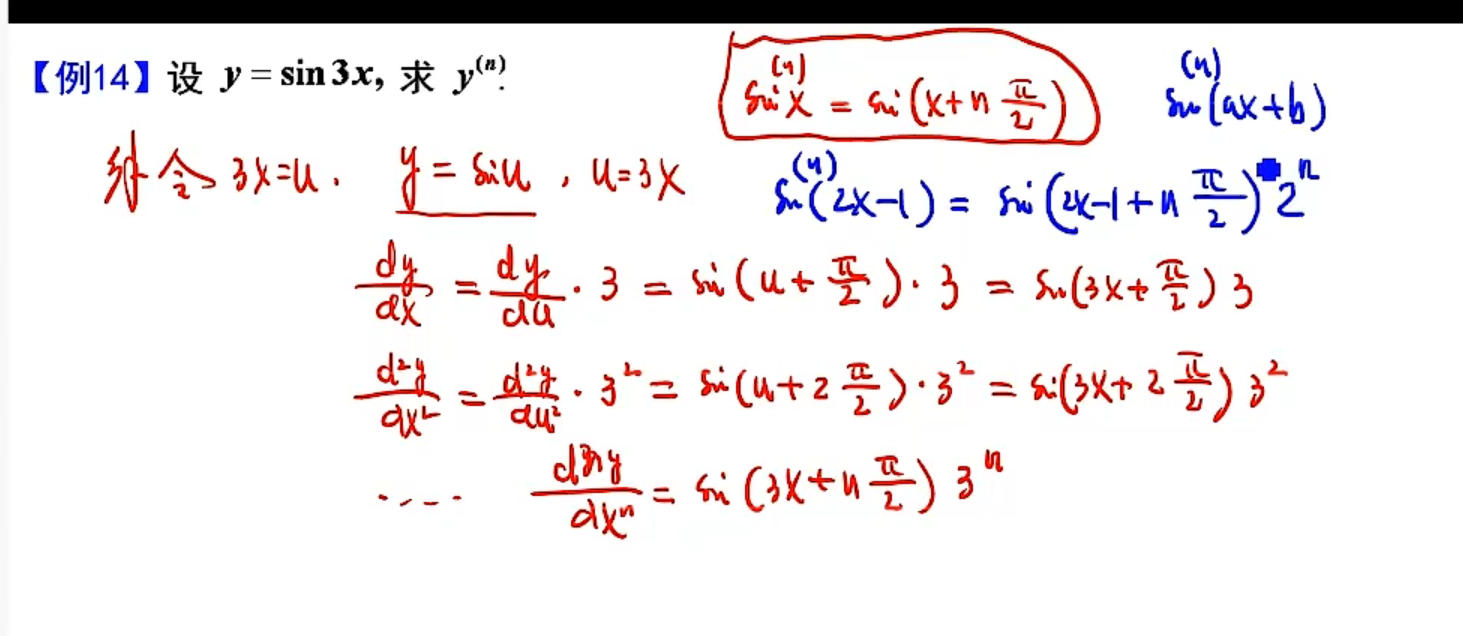 【例14】设 y = sin 3x, 求 y^(n).
sin^(n) x = sin(x + n π/2)
sin^(n)(ax+b)
令 3x=u. y = sin u, u=3x
sin^(n)(2x-1) = sin(2x-1+n π/2) 2^n
dy/dx = dy/du · 3 = sin(u + π/2) · 3 = sin(3x + π/2) 3
d²y/dx² = d²y/du² · 3² = sin(u + 2 π/2) · 3² = sin(3x + 2 π/2) 3²
.... dⁿy/dxⁿ = sin(3x + n π/2) 3^n